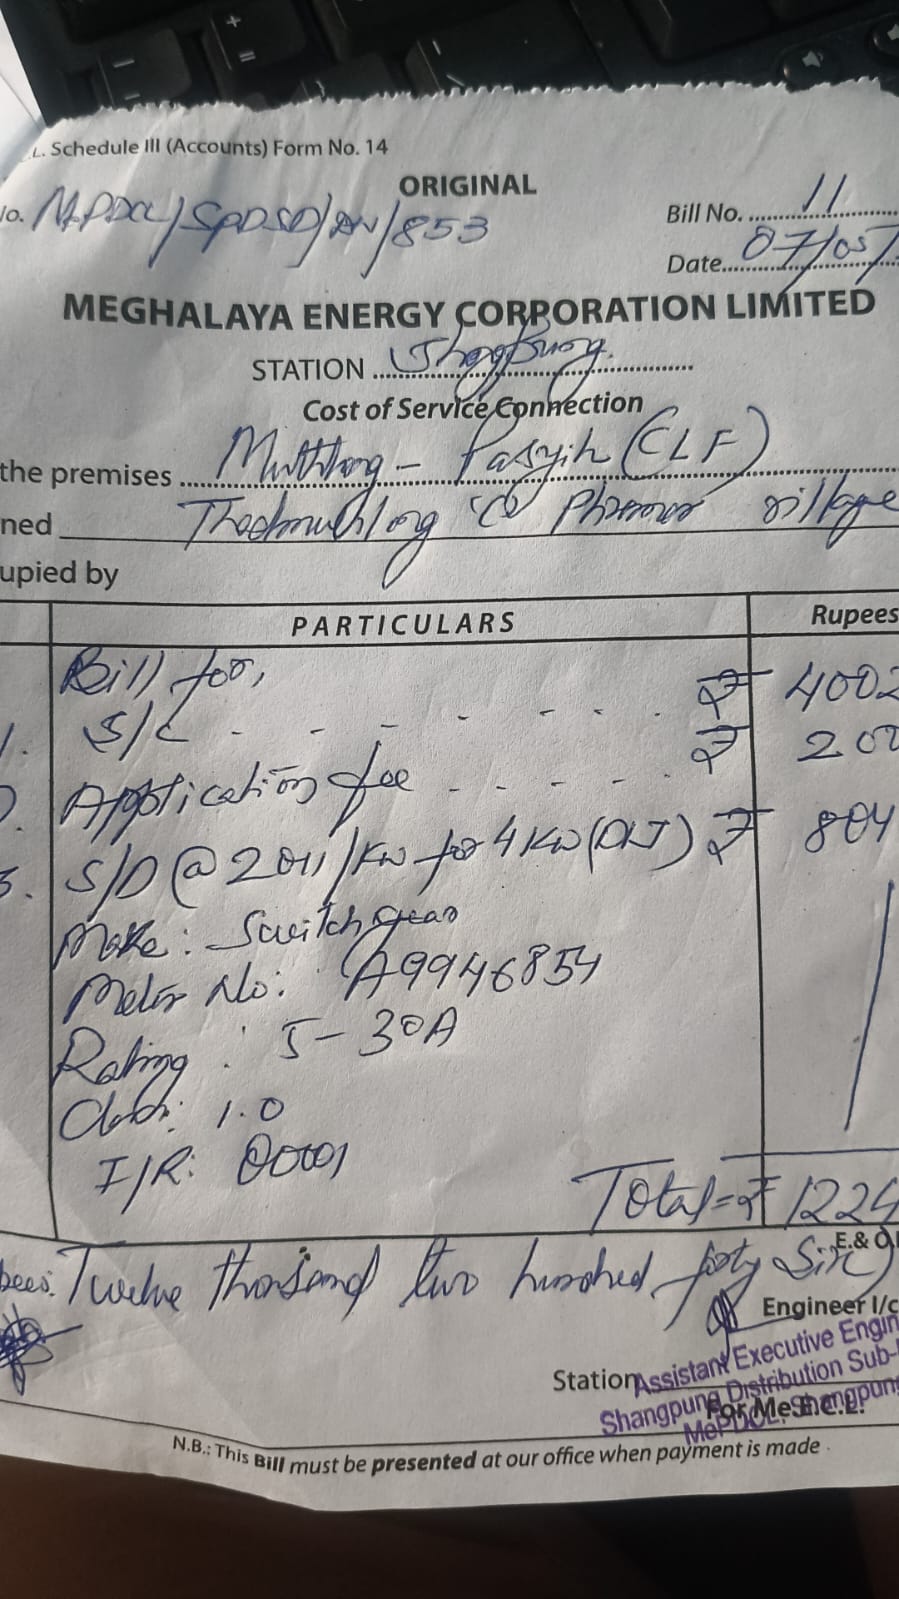 L. Schedule III (Accounts) Form No. 14
ORIGINAL
No. MePDCL/SPDSD/ /853
Bill No. 11
Date 07/05/
MEGHALAYA ENERGY CORPORATION LIMITED
STATION Shangpung.
Cost of Service Connection
the premises Muthlong - Pasyih (CLF)
ned Thadmuthlong village
upied by
PARTICULARS Rupees
Bill for,
1. S/C - - - - - - - ₹ 4002
2. Application fee - - - - - ₹ 200
3. S/D @ 2011/KW for 4 KW (DLT) ₹ 804
Make: Switchgear
Meter No: A9946854
Rating : 5-30A
Class: 1.0
I/R: 00001
Total = ₹ 1224
E.& O.
pees. Twelve thousand two hundred forty Six)
Engineer I/c
Station
Assistant Executive Engin
Shangpung Distribution Sub-
For Me.E.C.L.
MePDCL, Shangpung
N.B.: This Bill must be presented at our office when payment is made